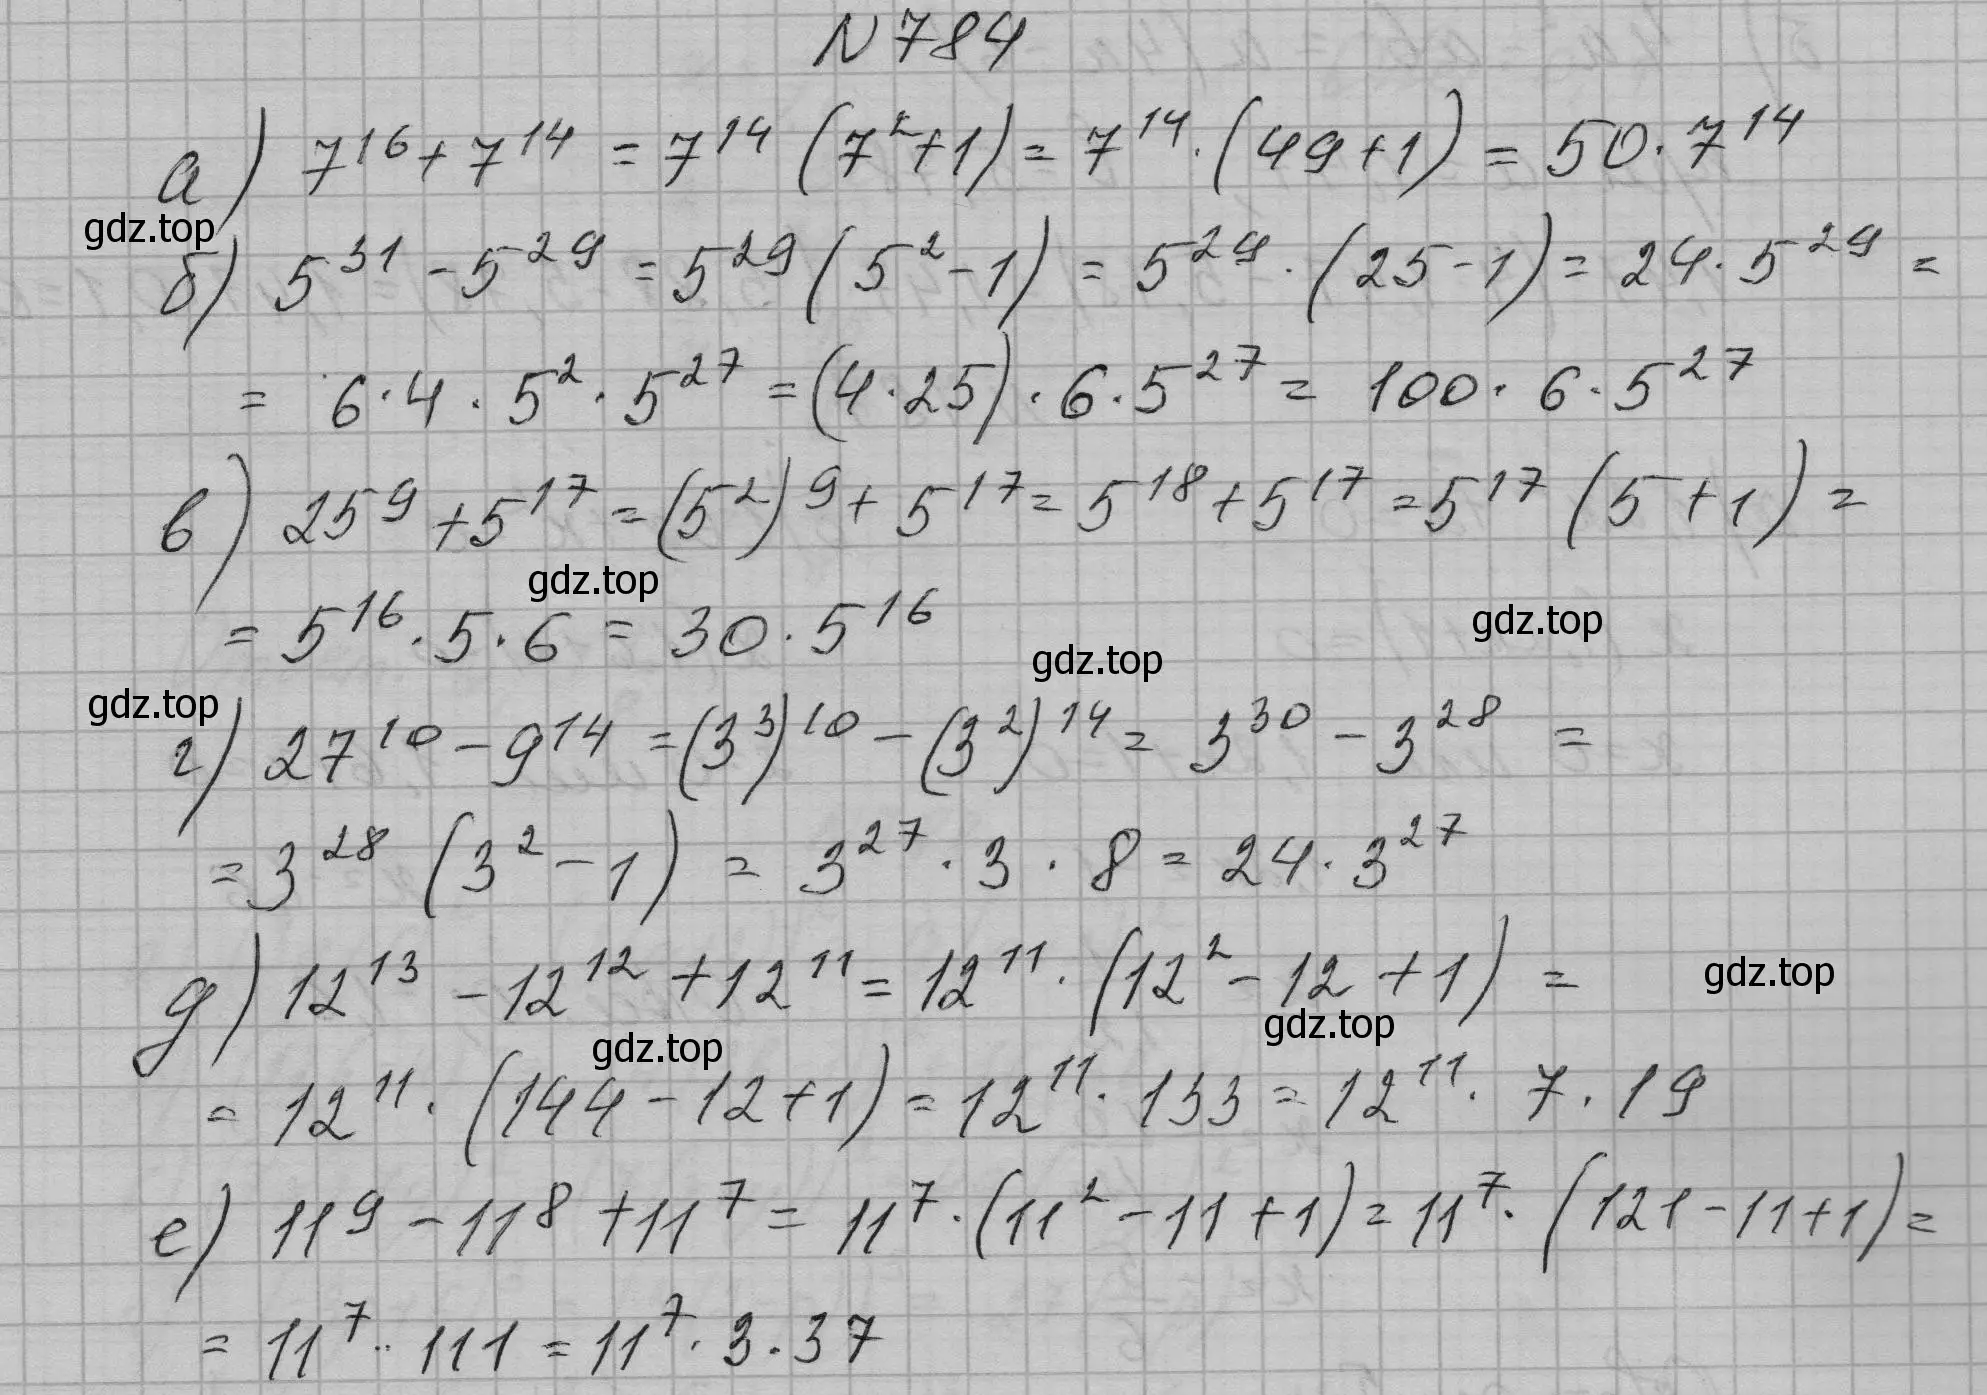 N784
а) 7^16 + 7^14 = 7^14 (7^2+1) = 7^14 · (49+1) = 50 · 7^14
gdz.top
б) 5^31 - 5^29 = 5^29 (5^2 - 1) = 5^29 · (25 - 1) = 24 · 5^29 =
= 6 · 4 · 5^2 · 5^27 = (4 · 25) · 6 · 5^27 = 100 · 6 · 5^27
в) 25^9 + 5^17 = (5^2)^9 + 5^17 = 5^18 + 5^17 = 5^17 (5 + 1) =
gdz.top
= 5^16 · 5 · 6 = 30 · 5^16
gdz.top
gdz.top
gdz.top
г) 27^10 - 9^14 = (3^3)^10 - (3^2)^14 = 3^30 - 3^28 =
= 3^28 (3^2 - 1) = 3^27 · 3 · 8 = 24 · 3^27
д) 12^13 - 12^12 + 12^11 = 12^11 · (12^2 - 12 + 1) =
gdz.top
gdz.top
gdz.top
= 12^11 · (144 - 12 + 1) = 12^11 · 133 = 12^11 · 7 · 19
е) 11^9 - 11^8 + 11^7 = 11^7 · (11^2 - 11 + 1) = 11^7 · (121 - 11 + 1) =
= 11^7 · 111 = 11^7 · 3 · 37